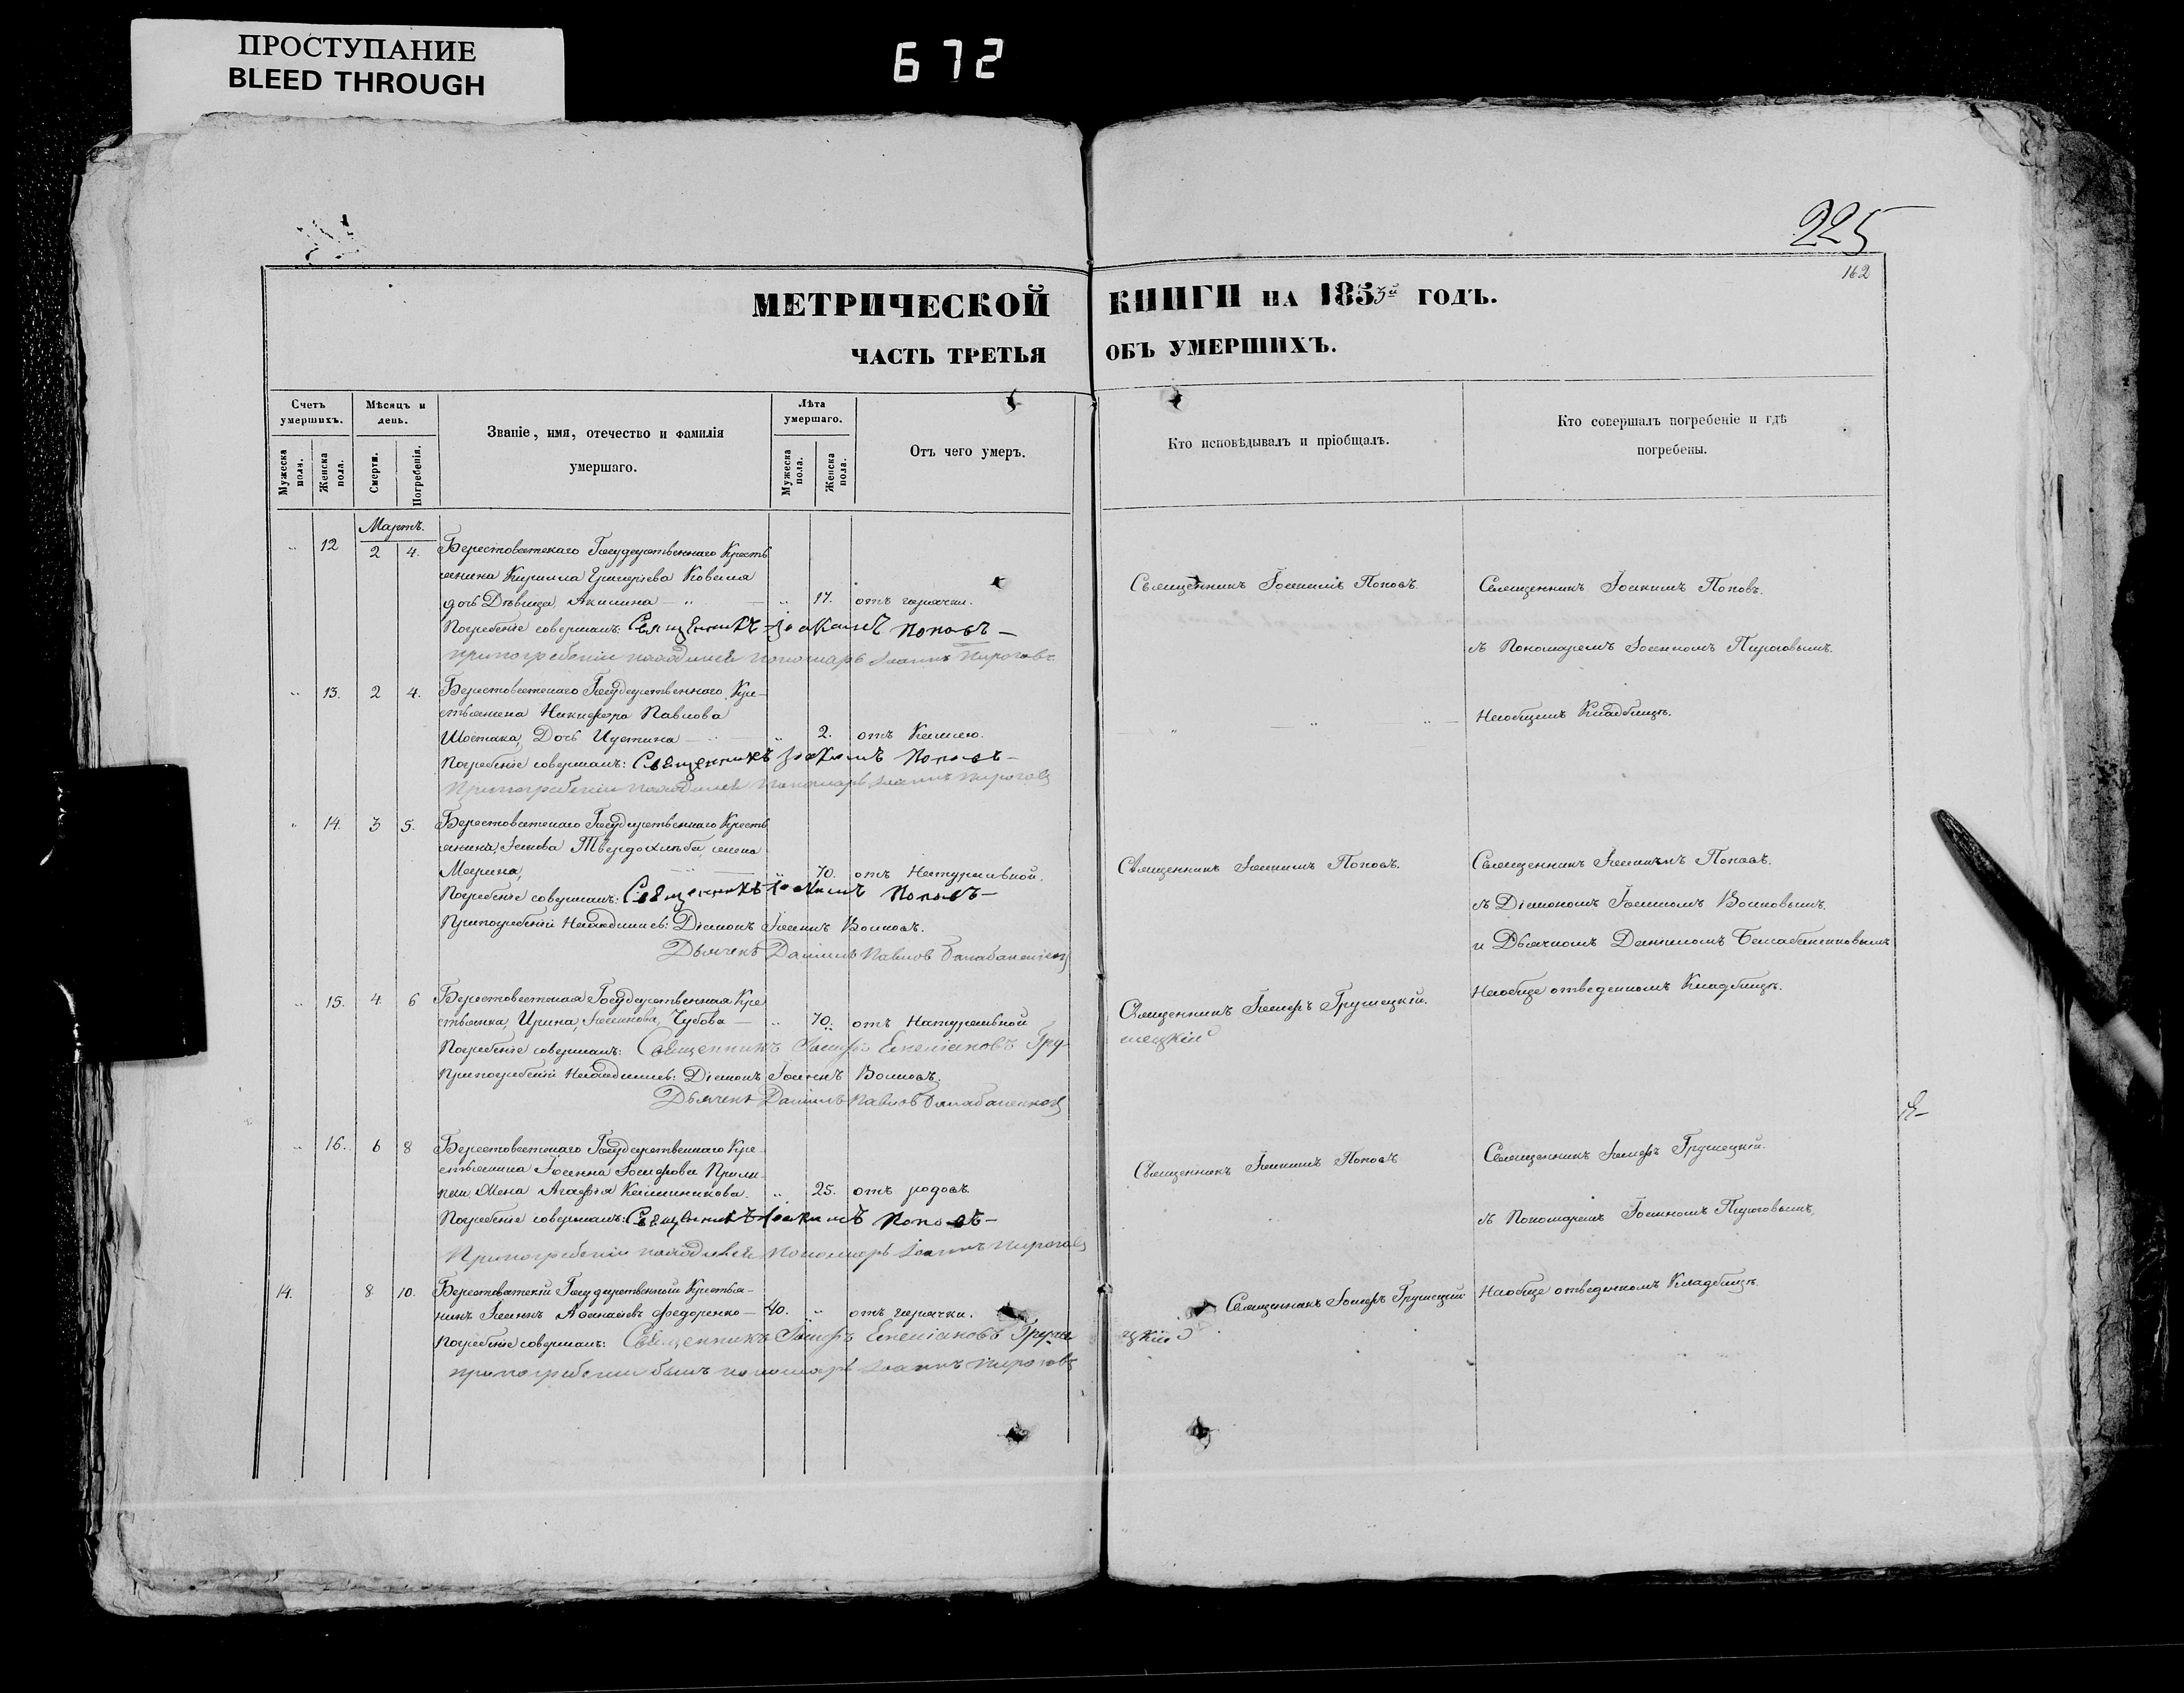 ПРОСТУПАНИЕ
BLEED THROUGH
672
225
162
МЕТРИЧЕСКОЙ КНИГИ НА 1853й ГОДЪ.
ЧАСТЬ ТРЕТЬЯ ОБЪ УМЕРШИХЪ.
Счетъ умершихъ.
Мужеска пола.
Женска пола.
Мѣсяцъ и день.
Смерти.
Погребенія.
Званіе, имя, отечество и фамилія умершаго.
Лѣта умершаго.
Мужеска пола.
Женска пола.
Отъ чего умеръ.
Кто исповѣдывалъ и пріобщалъ.
Кто совершалъ погребеніе и гдѣ погребены.
Мартъ.
12 2 4. Берестоватскаго Государственнаго Кресть
янина Кирилла Григорьева Коваля
дочь Дѣвица, Акилина 17. отъ горячки. Священникъ Іоакимъ Поповъ. Священникъ Іоакимъ Поповъ.
Погребеніе совершалъ: Священникъ Іоакимъ Поповъ
при погребеніи находился пономарь Іоаннъ Пироговъ съ Пономаремъ Іоанномъ Пироговымъ.
13. 2 4. Берестоватскаго Государственнаго Кре-
стьянина Никифора Павлова На общемъ Кладбищѣ.
Шостака, Дочь Иустина 2. отъ Кашлю.
Погребеніе совершалъ: Священникъ Іоакимъ Поповъ
При погребеніи находился Пономарь Іоаннъ Пироговъ
14. 3 5. Берестоватскаго Государственнаго Кресть
янина, Іакова Твердохлѣба, жена
Марина, 70. отъ Натуральной. Священникъ Іоакимъ Поповъ. Священникъ Іоакимъ Поповъ.
Погребеніе совершалъ: Священникъ Іоакимъ Поповъ
При погребеніи Находились: Діаконъ Іоаннъ Волковъ. съ Діакономъ Іоанномъ Волковымъ.
Дьячекъ Даніилъ Павловъ Балабаненковъ и Дьячкомъ Даніиломъ Балабаненковымъ
15. 4. 6 Берестоватская Государственная Кре На обще отведенномъ Кладбищѣ.
стьянка, Ирина Чубова 70. отъ Натуральной Священникъ Іосифъ Грушецкій.
Погребеніе совершалъ: Священникъ Іосифъ Емеліановъ Гру-
шецкій
При погребеніи Находились: Діаконъ Іоаннъ Волковъ.
Дьячекъ Даніилъ Павловъ Балабаненковъ
16. 6 8 Берестоватскаго Государственнаго Кре
стьянина Іоанна Іосифова Прили
пки, Жена Агафія Калинникова. 25. отъ родовъ. Священникъ Іоакимъ Поповъ Священникъ Іосифъ Грушецкій.
Погребеніе совершалъ: Священникъ Іоакимъ Поповъ съ Пономаремъ Іоанномъ Пироговымъ
При погребеніи находился Пономарь Іоаннъ Пироговъ
14. 8 10. Берестоватскій Государственный Крестья-
нинъ Іоаннъ Аѳанасіевъ Федоренко 40. отъ горячки. Священникъ Іосифъ Грушецкій На обще отведенномъ Кладбищѣ.
Погребеніе совершалъ: Священникъ Іосифъ Емеліановъ Груше
цкій
при погребеніи былъ пономарь Іоаннъ Пироговъ